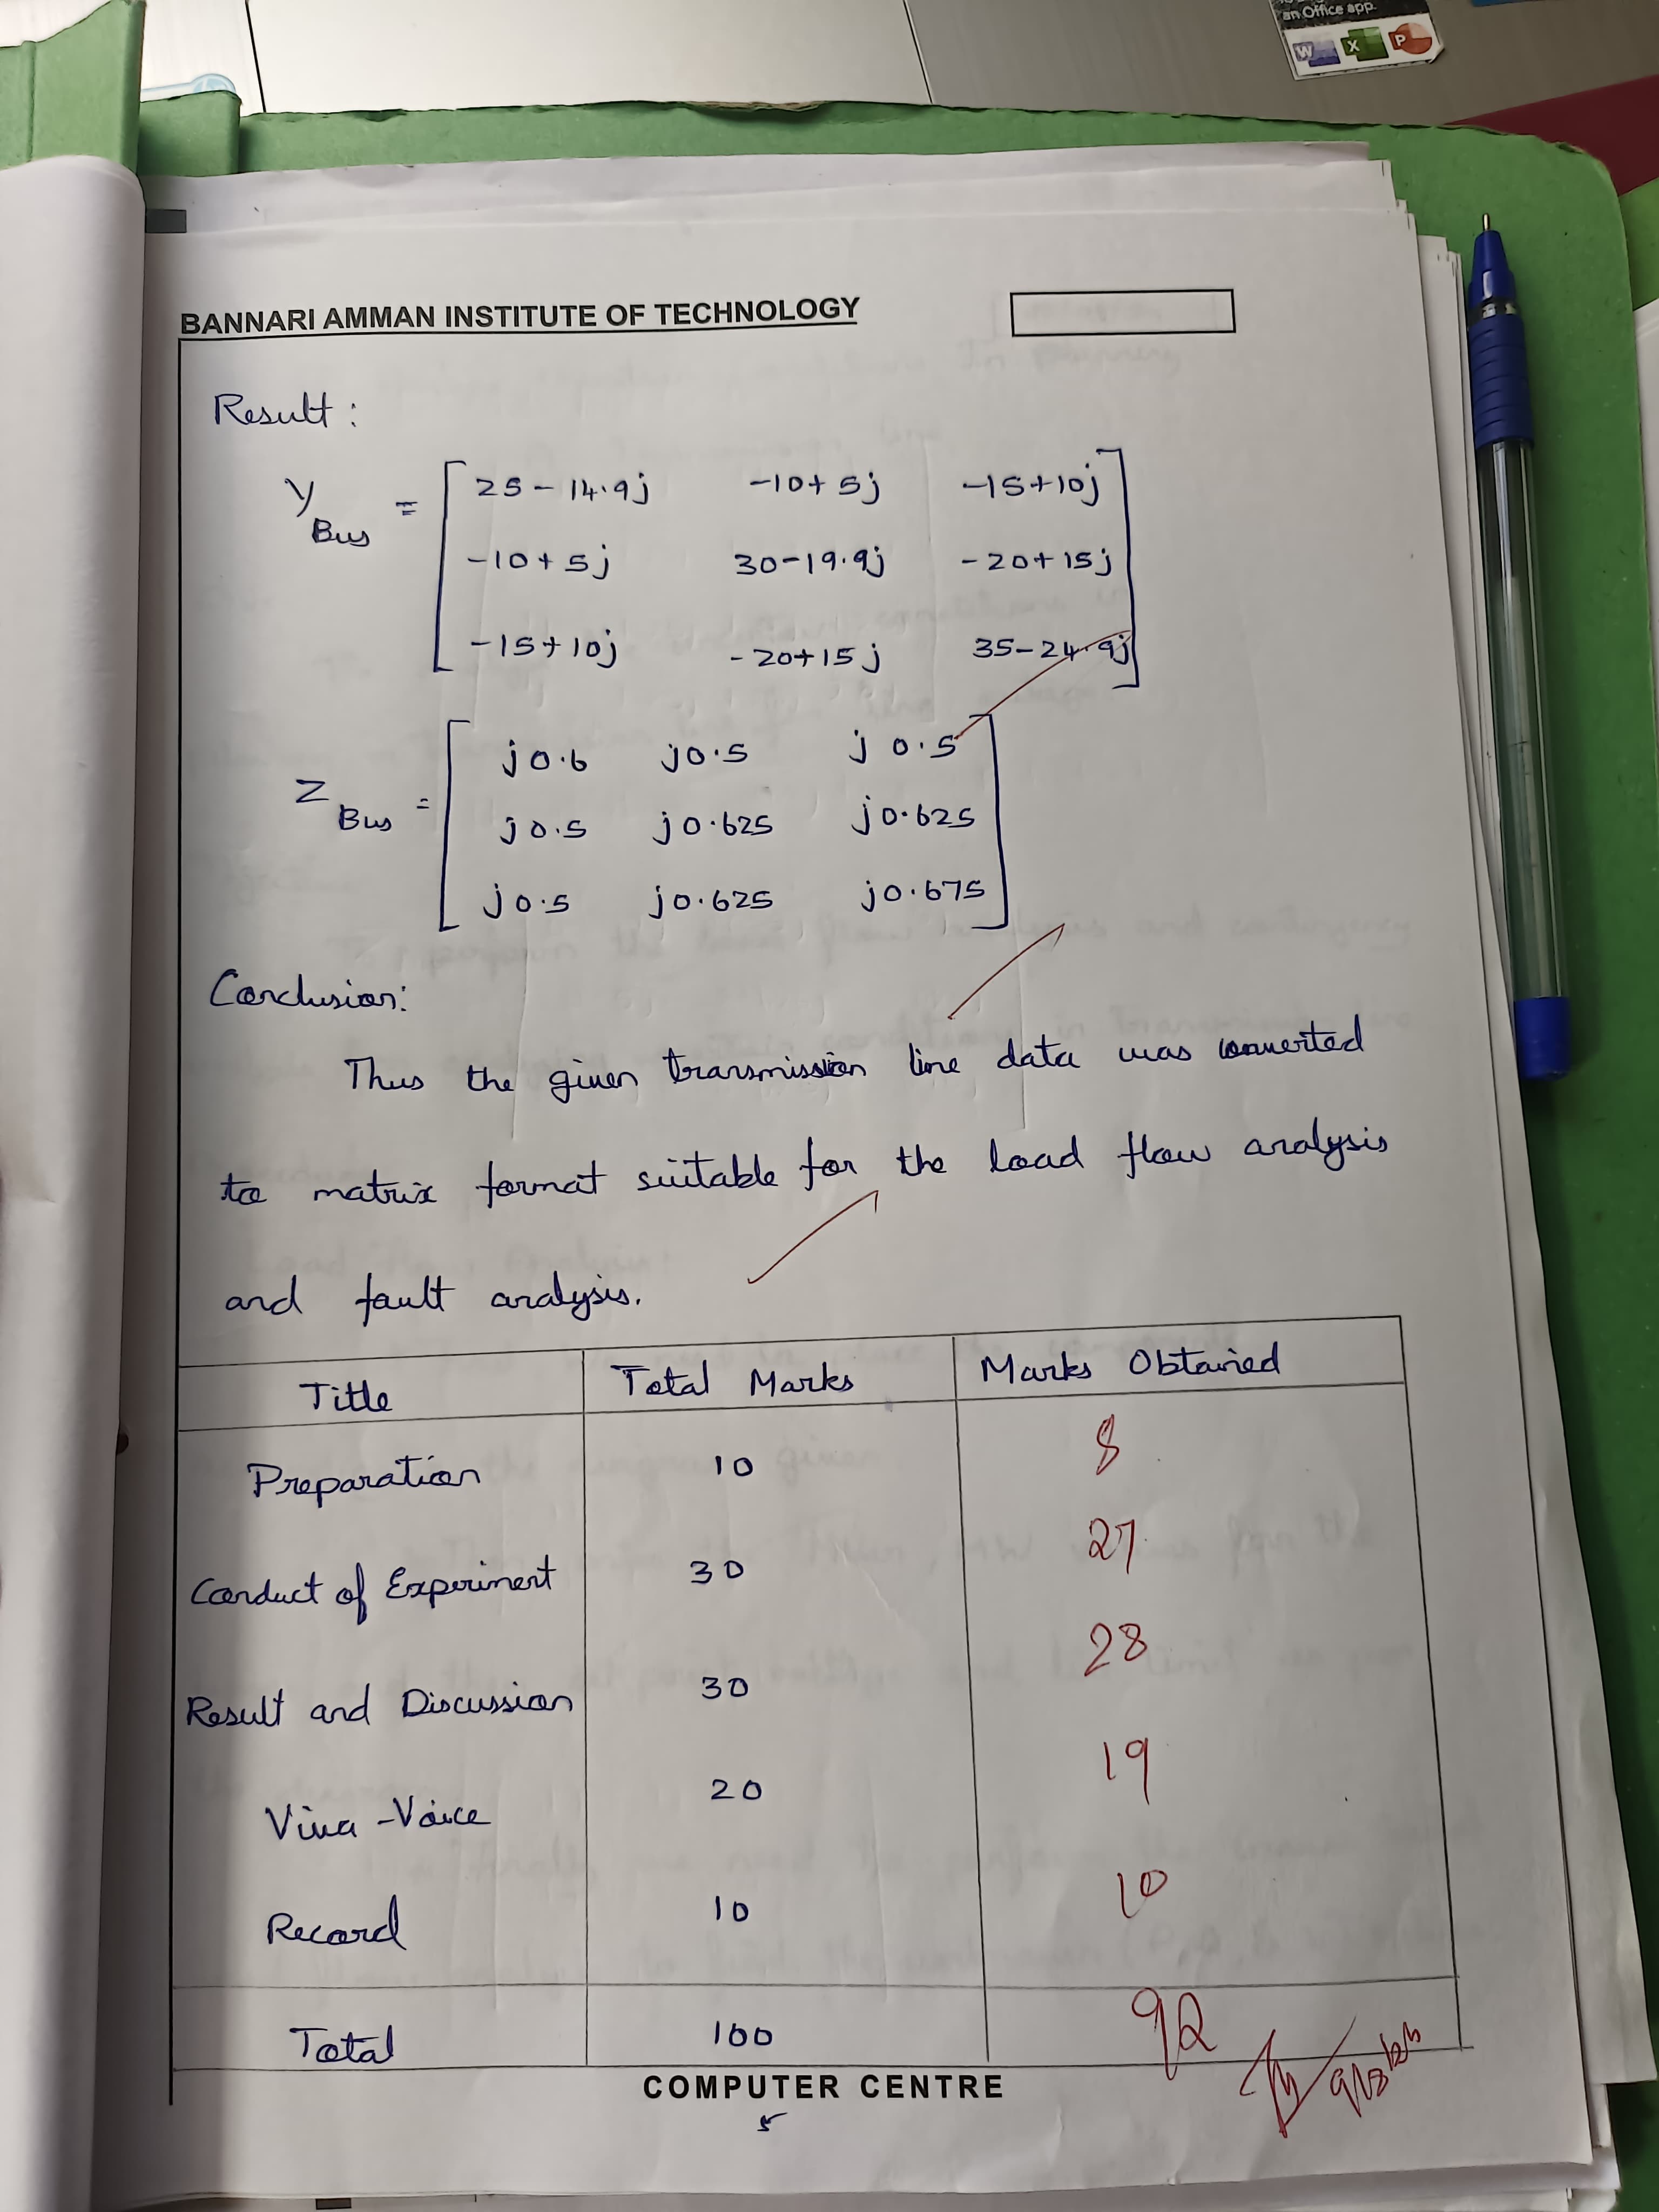 an Office app.
W X P
BANNARI AMMAN INSTITUTE OF TECHNOLOGY
Result :
Y Bus = [ 25 - 14.9j   -10 + 5j   -15 + 10j ]
[ -10 + 5j   30 - 19.9j   -20 + 15j ]
[ -15 + 10j   -20 + 15j   35 - 24.9j ]
Z Bus = [ j0.6   j0.5   j0.5 ]
[ j0.5   j0.625   j0.625 ]
[ j0.5   j0.625   j0.675 ]
Conclusion:
Thus the given transmission line data was converted
to matrix format suitable for the load flow analysis
and fault analysis.
Title   Total Marks   Marks Obtained
Preparation   10   8
Conduct of Experiment   30   27
Result and Discussion   30   28
Viva - Voice   20   19
Record   10   10
Total   100   92
COMPUTER CENTRE
5